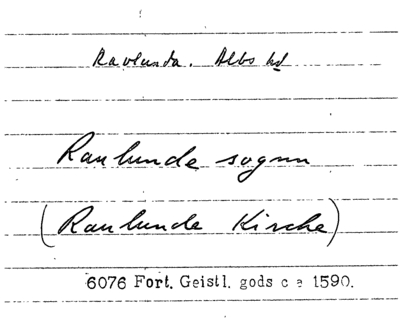 Ravlunda. Albo hd
Raulunde sognn
(Raulunde Kirche)
6076 Fort. Geistl. gods c a 1590.